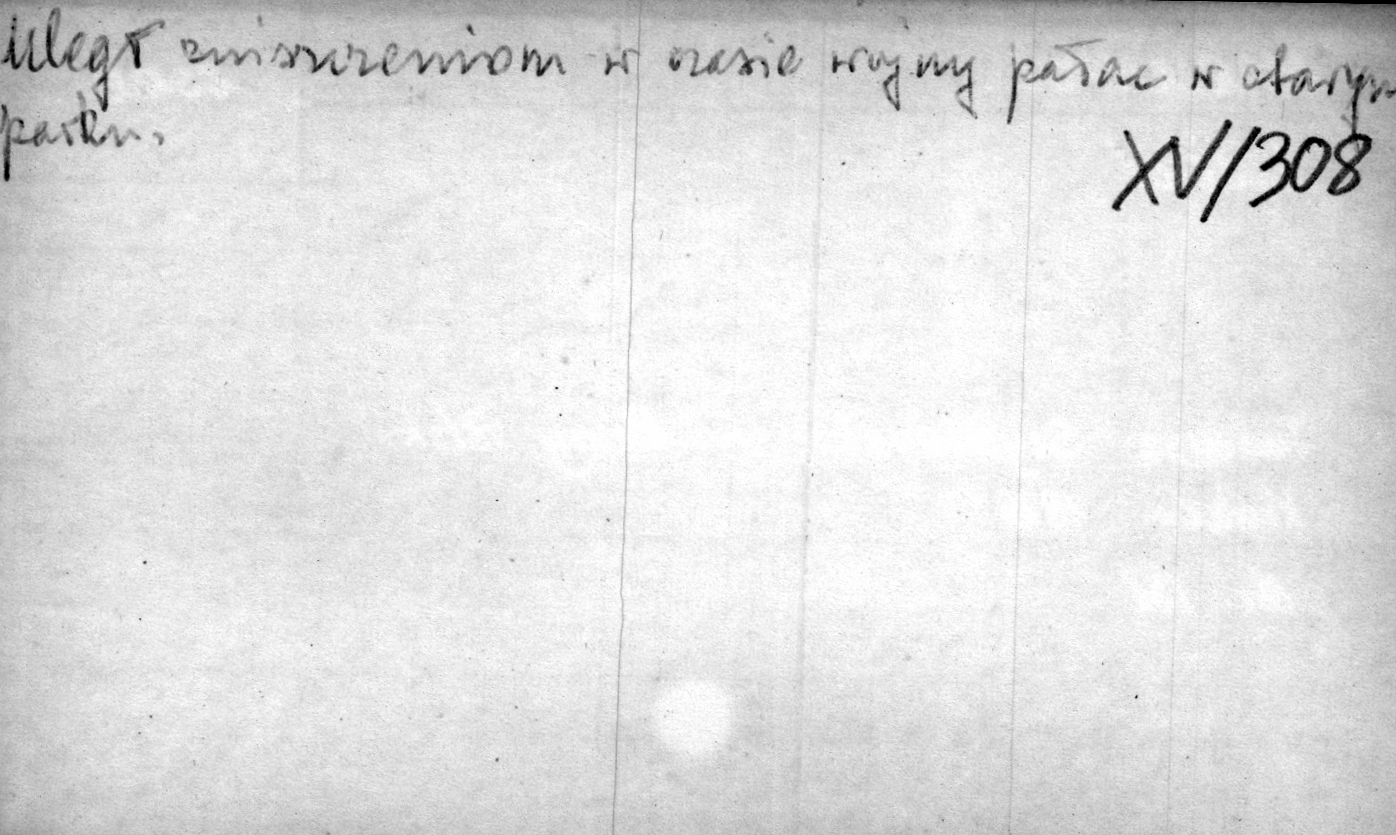 Uległ zniszczeniom w czasie wojny pałac w starym
parku.
XV/308